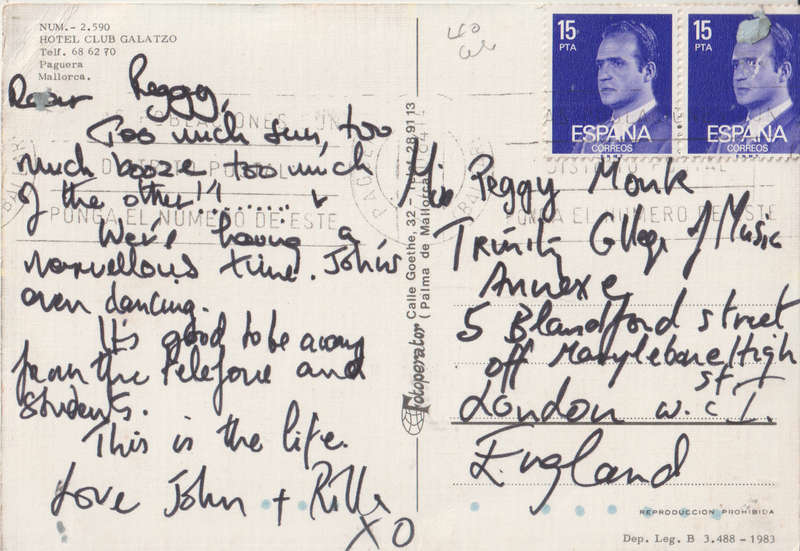 NUM. - 2.590
HOTEL CLUB GALATZO
Telf. 68 62 70
Paguera
Mallorca.
Dear Peggy,
Too much sun, too
much booze too much
of the other!!.........
We're having a
marvellous time. John's
even dancing.
It's good to be away
from the telefone and
students.
This is the life.
Love John + Rilla
XO
Fotoperator Calle Goethe, 32 - Telf. 28 91 13
(Palma de Mallorca)
40
15
PTA
ESPAÑA
CORREOS
15
PTA
ESPAÑA
CORREOS
POBLACIONES CON
DISTRITO POSTAL
PONGA EL NUMERO DE ESTE
PAGUERA
DISTRITO POSTAL
PONGA EL NUMERO DE ESTE
Miss Peggy Monk
Trinity College of Music
Annexe
5 Blandford Street
off Marylebone High
St.
London W.C I.
England
REPRODUCCION PROHIBIDA
Dep. Leg. B 3.488 - 1983